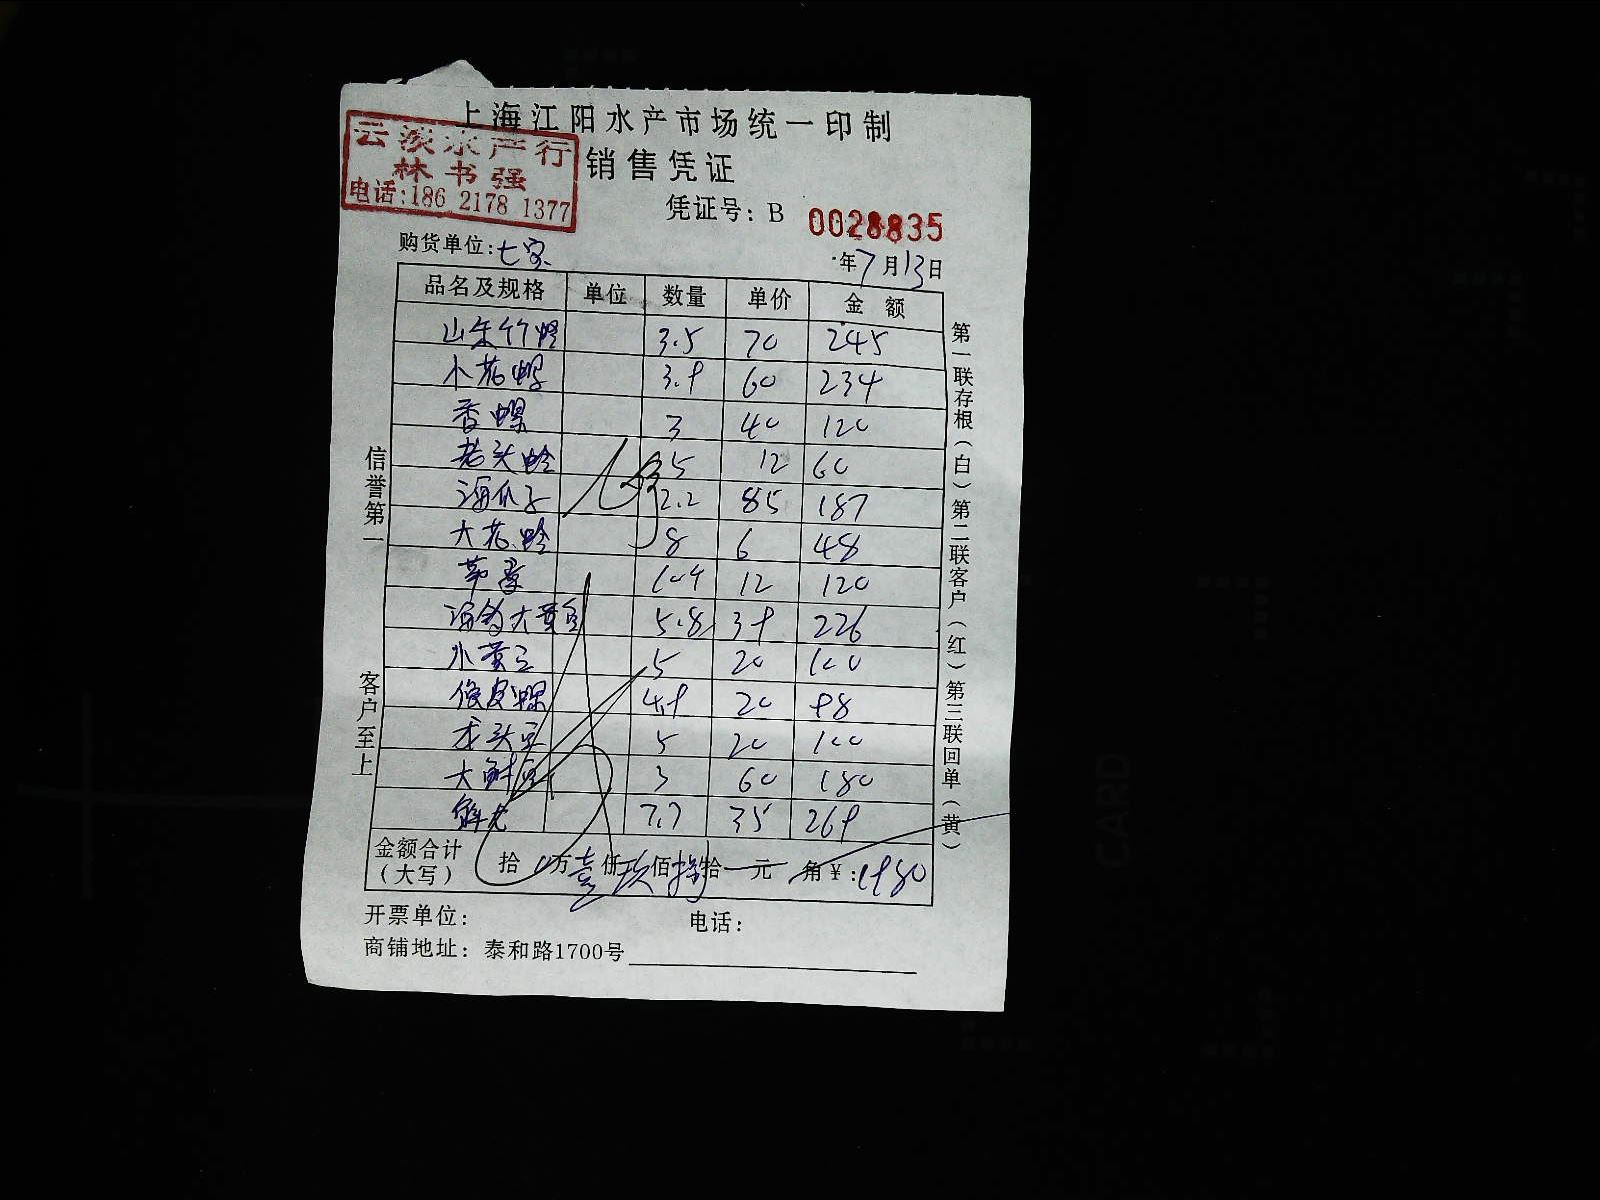 上海江阳水产市场统一印制
云淡水产行
林书强
电话:186 2178 1377
销售凭证
凭证号: B 0028835
购货单位:七宝
年7月13日
品名及规格 单位 数量 单价 金额
山东竹蛏 3.5 70 245
小花螺 3.9 60 234
香螺 3 40 120
老头蛤 5 12 60
海瓜子 2.2 85 187
大花蛤 8 6 48
10.4 12 120
大黄鱼 5.8 39 226
小黄鱼 5 20 100
螺 4.9 20 98
龙头鱼 5 20 100
大 3 60 180
7.7 35 269
金额合计（大写） 拾 万壹仟玖佰捌拾 元 角¥:1980
开票单位: 电话:
商铺地址: 泰和路1700号
信誉第一
客户至上
第一联存根(白)第二联客户(红)第三联回单(黄)